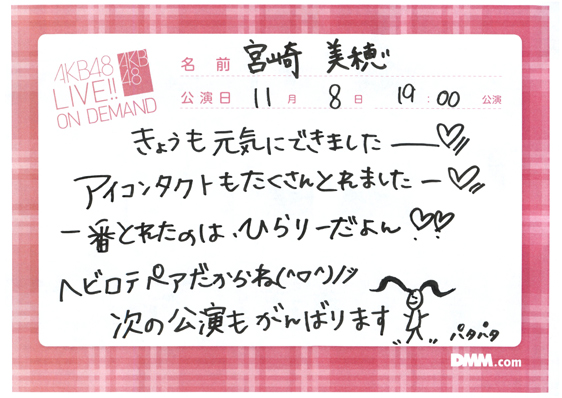 AKB48
LIVE!!
ON DEMAND
AKB
48
名 前 宮崎 美穂
公演日 11月 8日 19:00 公演
きょうも元気にできましたー♡
アイコンタクトもたくさんとれましたー♡
一番とれたのは、ひらりーだよん♡♡
ヘビロテペアだからね(^o^)ノシ
次の公演もがんばります
パタパタ
DMM.com